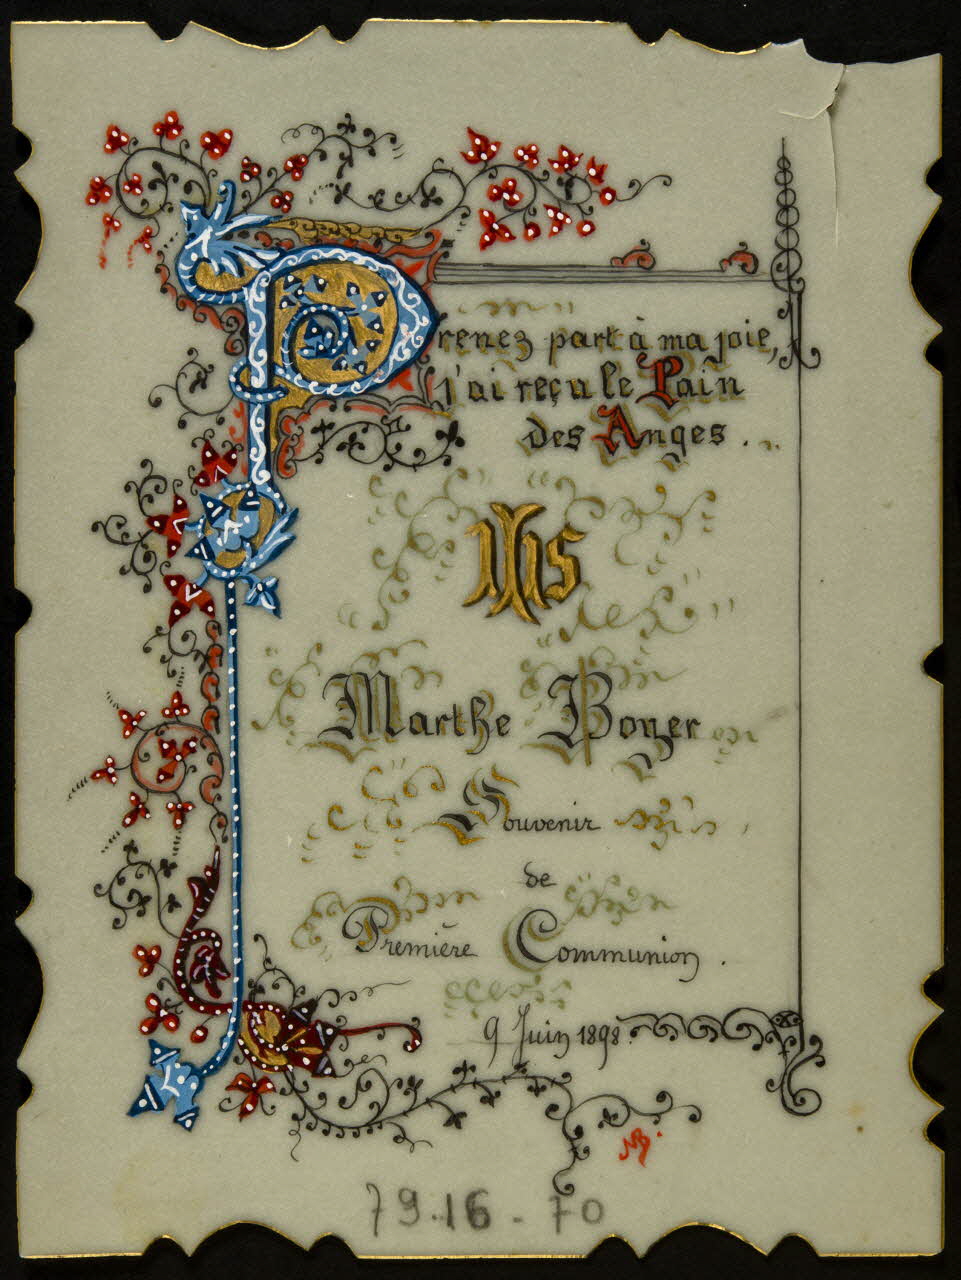 Prenez part à ma joie,
j'ai reçu le Pain
des Anges.
IHS
Marthe Boyer
Souvenir
de
Première Communion.
9 Juin 1898.
MB.
79.16-70